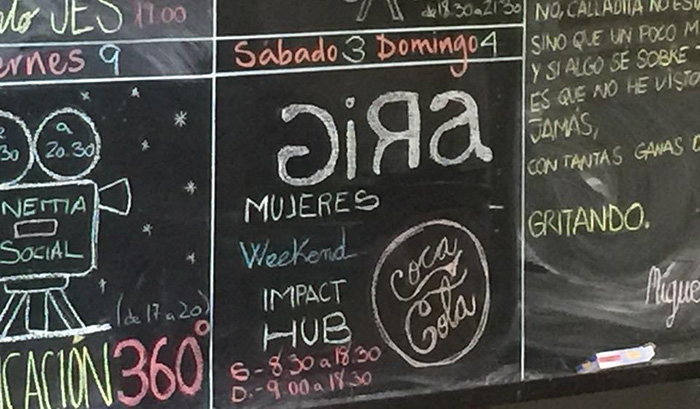 JES 17:00
de 18:30 a 21:30
ernes 9
a
20:30
30
NEMA
SOCIAL
(de 17 a 20)
CACIÓN 360°
Sábado 3 Domingo 4
GIRA
MUJERES
Weekend
IMPACT
HUB
coca
Cola
S.- 8:30 a 18:30
D.- 9:00 a 18:30
NO, CALLADITA NO ES
SINO QUE UN POCO M
Y SI ALGO SE SOBRE
ES QUE NO HE VISTO
JAMÁS,
CON TANTAS GANAS D
GRITANDO.
Migue